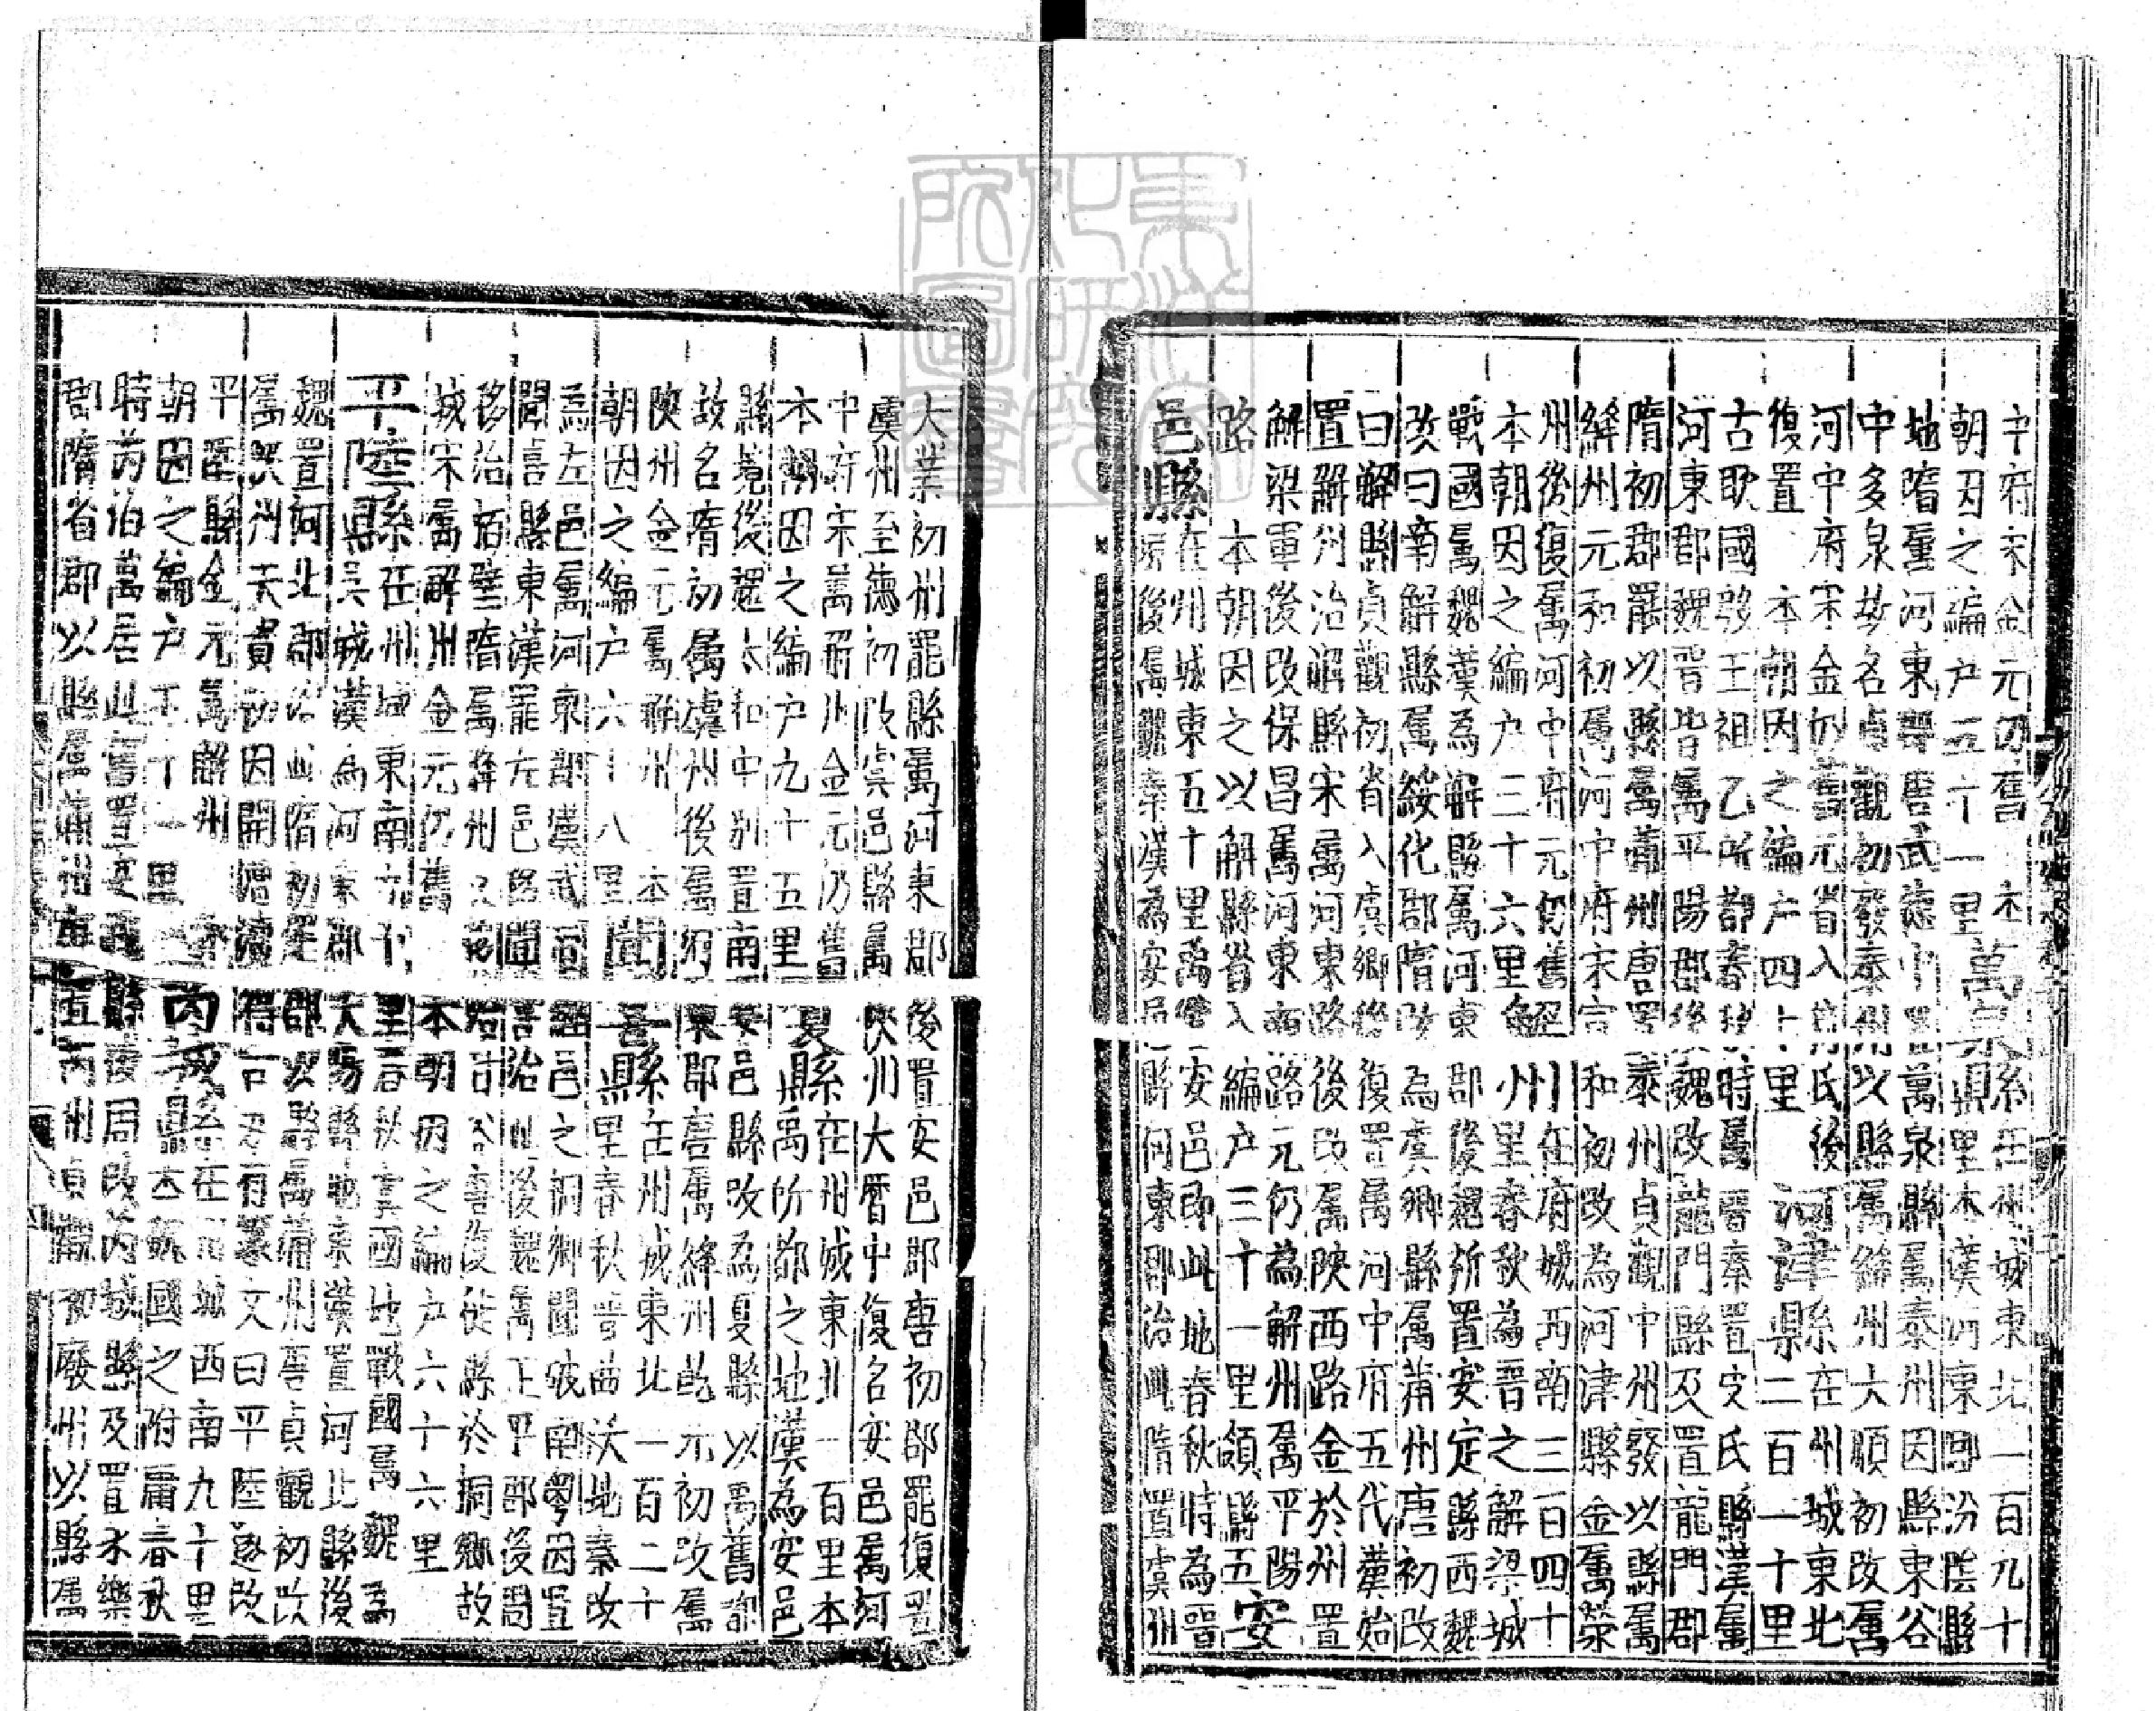 中府宋金元仍舊 本萬泉縣在州城東北一百九十
朝因之編户五十一里里本漢河東郡汾陰縣
地隋屬河東郡唐武德中置萬泉縣屬泰州因縣東谷
中多泉故名貞觀初廢泰州以縣屬絳州大順初改屬
河中府宋金仍舊元省入猗氏後河津縣在州城東北
復置 本朝因之編户四十里二百一十里
古耿國殷王祖乙所都春秋時屬晉秦置皮氏縣漢屬
河東郡魏晉皆屬平陽郡後魏改龍門縣及置龍門郡
隋初郡罷以縣屬蒲州唐置泰州貞觀中州發以縣屬
絳州元和初屬河中府宋宣和初改為河津縣金屬滎
州後復屬河中府元仍舊解州在府城西南三百四十
本朝因之編户三十六里里春秋為晉之解梁城
戰國屬魏漢為解縣屬河東郡後魏析置安定縣西魏
改曰南解縣屬綏化郡隋改為虞鄉縣屬蒲州唐初改
曰解縣貞觀初省入虞鄉後復置屬河中府五代漢始
置解州治解縣宋屬河東路後改屬陝西路金於州置
解梁軍後改保昌屬河東南路元仍為解州屬平陽
路 本朝因之以解縣省入編户三十一里領縣五安
邑縣在州城東五十里禹安邑即此地春秋時為晉
境後屬魏秦漢為安邑縣河東郡治此隋置虞州
大業初州罷縣屬河東郡後置安邑郡唐初郡罷復置
虞州至德初改虞邑縣屬陝州大曆中復名安邑屬河
中府宋屬解州金元仍舊夏縣在州城東北一百里本
本朝因之編户九十五里禹所都之地漢為安邑
縣境後魏太和中別置南安邑縣改為夏縣以禹舊都
故名隋初屬虞州後屬河東郡唐屬絳州乾元初改屬
陝州金元屬解州 本聞喜縣在州城東北一百二十
朝因之編户六十八里里春秋晉曲沃地秦改
為左邑屬河東郡漢武帝經邑之桐鄉聞破南粤因置
聞喜縣東漢罷左邑移聞喜治此後魏屬正平郡後周
移治栢壁隋屬絳州又移治甘谷唐復徙縣於桐鄉故
城宋屬解州金元仍舊 本朝因之編户六十六里
平陸縣在州城東南九十里春秋虞國地戰國屬魏為
吳城漢為河東郡大陽縣地東漢置河北縣後
魏置河北郡治此隋初罷郡以縣屬蒲州唐貞觀初改
屬陝州天寶初因開漕瀆得古刃有篆文曰平陸遂改
平陸縣金元屬解州 本芮城縣在州城西南九十里
朝因之編户五十一里古魏國之附庸春秋
時芮伯萬居此舊置安縣後周改芮城縣及置永樂
郡隋省郡以縣屬蒲州唐置芮州貞觀初廢州以縣屬